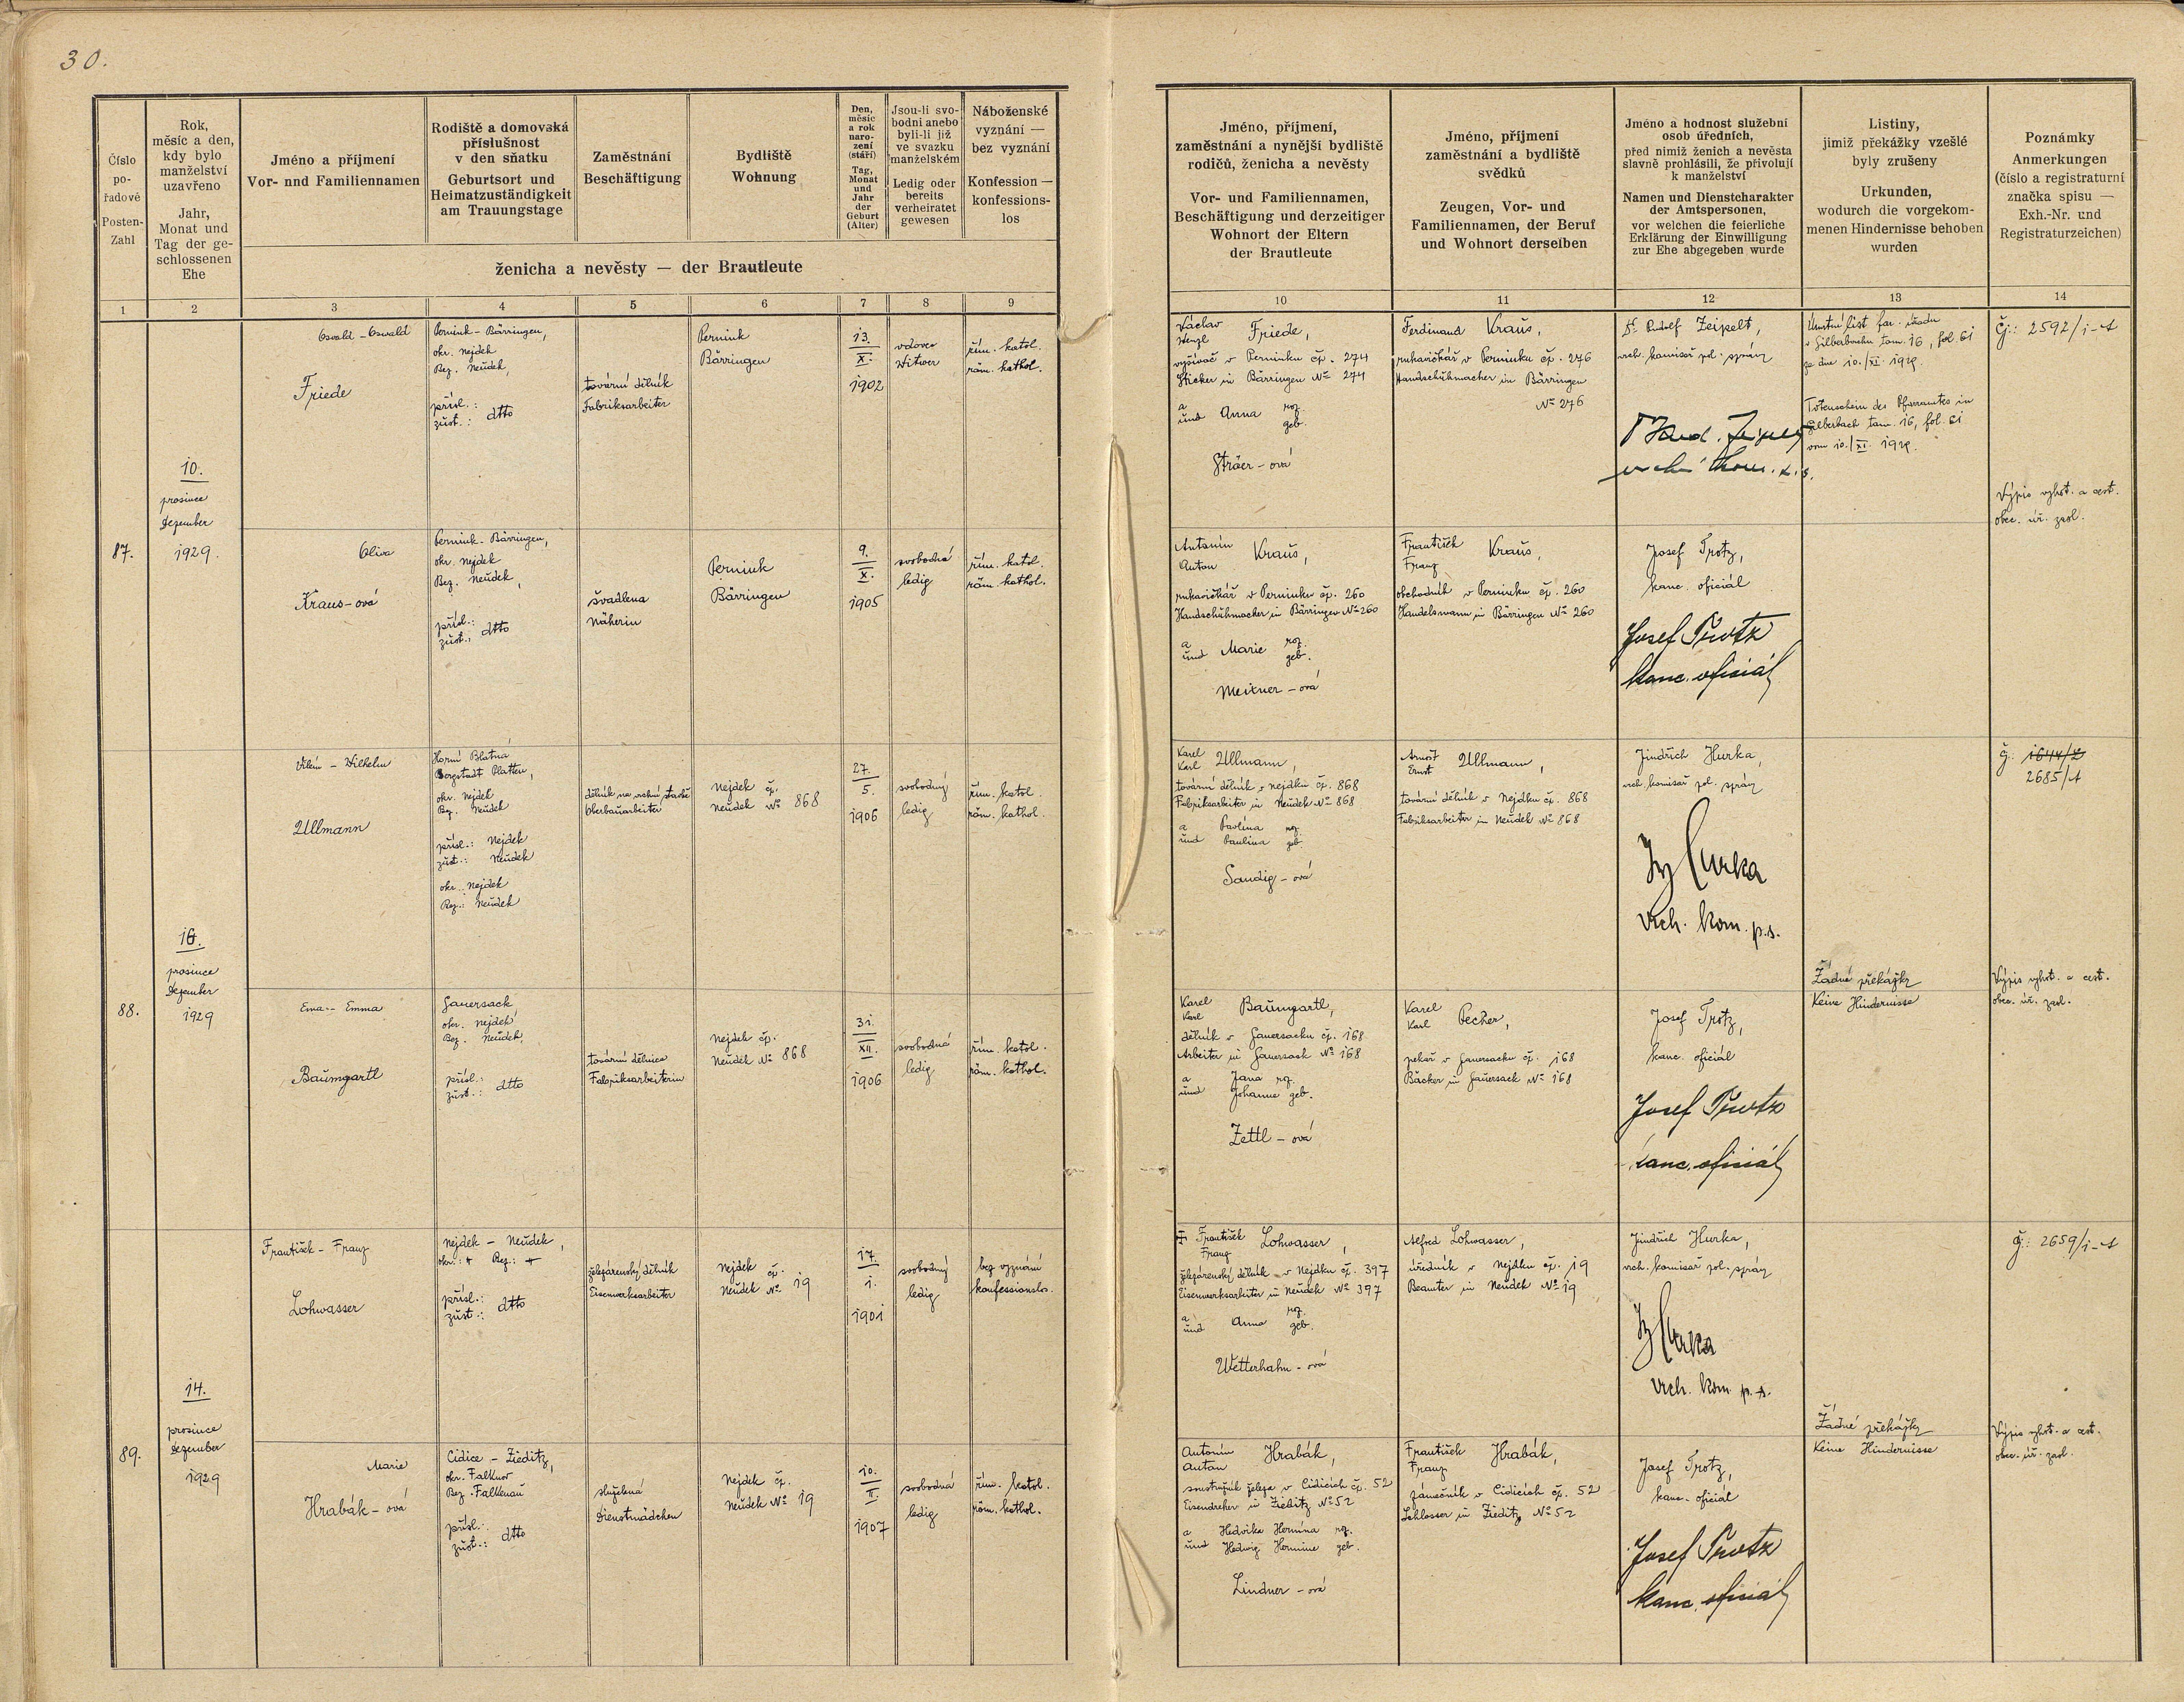 30.
Číslo
po-
řadové
Posten-
Zahl
Rok,
měsíc a den,
kdy bylo
manželství
uzavřeno
Jahr,
Monat und
Tag der ge-
schlossenen
Ehe
Jméno a příjmení
Vor- nnd Familiennamen
Rodiště a domovská
příslušnost
v den sňatku
Geburtsort und
Heimatzuständigkeit
am Trauungstage
Zaměstnání
Beschäftigung
Bydliště
Wohnung
Den,
měsíc
a rok
naro-
zení
(stáří)
Tag,
Monat
und
Jahr
der
Geburt
(Alter)
Jsou-li svo-
bodni anebo
byli-li již
ve svazku
manželském
Ledig oder
bereits
verheiratet
gewesen
Náboženské
vyznání —
bez vyznání
Konfession —
konfessions-
los
ženicha a nevěsty — der Brautleute
Jméno, příjmení,
zaměstnání a nynější bydliště
rodičů, ženicha a nevěsty
Vor- und Familiennamen,
Beschäftigung und derzeitiger
Wohnort der Eltern
der Brautleute
Jméno, příjmení
zaměstnání a bydliště
svědků
Zeugen, Vor- und
Familiennamen, der Beruf
und Wohnort derselben
Jméno a hodnost služební
osob úředních,
před nimiž ženich a nevěsta
slavně prohlásili, že přivolují
k manželství
Namen und Dienstcharakter
der Amtspersonen,
vor welchen die feierliche
Erklärung der Einwilligung
zur Ehe abgegeben wurde
Listiny,
jimiž překážky vzešlé
byly zrušeny
Urkunden,
wodurch die vorgekom-
menen Hindernisse behoben
wurden
Poznámky
Anmerkungen
(číslo a registraturní
značka spisu —
Exh.-Nr. und
Registraturzeichen)
1 2 3 4 5 6 7 8 9 10 11 12 13 14
87.
10.
prosince
Dezember
1929.
Osvald - Oswald
Friede
Pernink - Bärringen,
okr. Nejdek
Bez. Neudek,
přísl.:
zust.: dtto
tovární dělník
Fabriksarbeiter
Pernink
Bärringen
13.
X.
1902
vdovec
Witwer
řím. katol.
röm. kathol.
Václav
Wenzl Friede,
vyšívač v Perninku čp. 274
Sticker in Bärringen No 274
a
und Anna roz.
geb.
Ströer - ová
Ferdinand Kraus,
rukavičkář v Perninku čp. 276
Handschuhmacher in Bärringen
No 276
Dr. Rudolf Zeipelt,
vrch. komisař pol. správy
Úmrtní list far. úřadu
v Silberbachu tom. 16, fol. 61
ze dne 10./XI. 1929.
Totenschein des Pfarramtes in
Silberbach tom. 16, fol. 61
vom 10./XI. 1929.
Č.: 2592/i-A
Výpis vyhot. a cest.
obec. úř. zasl.
Oliva
Kraus-ová
Pernink - Bärringen,
okr. Nejdek
Bez. Neudek,
přísl.:
zust.: dtto
švadlena
Näherin
Pernink
Bärringen
9.
X.
1905
svobodná
ledig
řím. katol.
röm. kathol.
Antonín
Anton Kraus,
rukavičkář v Perninku čp. 260
Handschuhmacher in Bärringen No 260
a
und Marie roz.
geb.
Meixner - ová
František
Franz Kraus,
obchodník v Perninku čp. 260
Handelsmann in Bärringen No 260
Josef Trotz,
kanc. oficiál
Josef Trotz
kanc. oficiál
88.
16.
prosince
Dezember
1929
Vilém - Wilhelm
Ullmann
Horní Blatná
Bergstadt Platten,
okr. Nejdek
Bez. Neudek
přísl.: Nejdek
zust.: Neudek
okr. Nejdek
Bez.: Neudek
dělník na vrchní stavbě
Oberbauarbeiter
Nejdek čp.
Neudek No 868
27.
5.
1906
svobodný
ledig
řím. katol.
röm. kathol.
Karel
Karl Ullmann,
tovární dělník v Nejdku čp. 868
Fabriksarbeiter in Neudek No 868
a Pavlína roz.
und Paulina geb.
Sandig - ová
Arnošt
Ernst Ullmann,
tovární dělník v Nejdku čp. 868
Fabriksarbeiter in Neudek No 868
Jindřich Hurka,
vrch. komisař pol. správy
Hurka
vrch. kom. p.s.
Žádné překážky
Keine Hindernisse
Č.: 1644/Z
2685/A
Výpis vyhot. a cest.
obec. úř. zasl.
Ema - Emma
Baumgartl
Sauersack
okr. Nejdek
Bez. Neudek
přísl.:
zust.: dtto
tovární dělnice
Fabriksarbeiterin
Nejdek čp.
Neudek No 868
31.
XII.
1906
svobodná
ledig
řím. katol.
röm. kathol.
Karel
Karl Baumgartl,
dělník v Sauersacku čp. 168
Arbeiter in Sauersack No 168
a Jana roz.
und Johanne geb.
Zettl - ová
Karel
Karl Pecher,
pekař v Sauersacku čp. 168
Bäcker in Sauersack No 168
Josef Trotz,
kanc. oficiál
Josef Trotz
kanc. oficiál
89.
14.
prosince
Dezember
1929
František - Franz
Lohwasser
Nejdek - Neudek,
okr.: + Bez.: +
přísl.:
zust.: dtto
železárenský dělník
Eisenwerksarbeiter
Nejdek čp.
Neudek No 19
17.
1.
1901
svobodný
ledig
bez vyznání
konfessionslos
František
Franz Lohwasser,
železárenský dělník v Nejdku čp. 397
Eisenwerksarbeiter in Neudek No 397
a
und Anna roz.
geb.
Wetterhahn - ová
Alfred Lohwasser,
úředník v Nejdku čp. 19
Beamter in Neudek No 19
Jindřich Hurka,
vrch. komisař pol. správy
Hurka
vrch. kom. p. s.
Žádné překážky
Keine Hindernisse
Č.: 2659/i-A
Výpis vyhot. a cest.
obec. úř. zasl.
Marie
Hrabák - ová
Cidice - Zieditz,
okr. Falknov
Bez. Falkenau
přísl.:
zust.: dtto
služebná
Dienstmädchen
Nejdek čp.
Neudek No 19
10.
II.
1907
svobodná
ledig
řím. katol.
röm. kathol.
Antonín
Anton Hrabák,
soustružník železa v Cidicích čp. 52
Eisendreher in Zieditz No 52
a Hedvika Hermína roz.
und Hedwig Hermine geb.
Lindner - ová
František
Franz Hrabák,
zámečník v Cidicích čp. 52
Schlosser in Zieditz No 52
Josef Trotz,
kanc. oficiál
Josef Trotz
kanc. oficiál